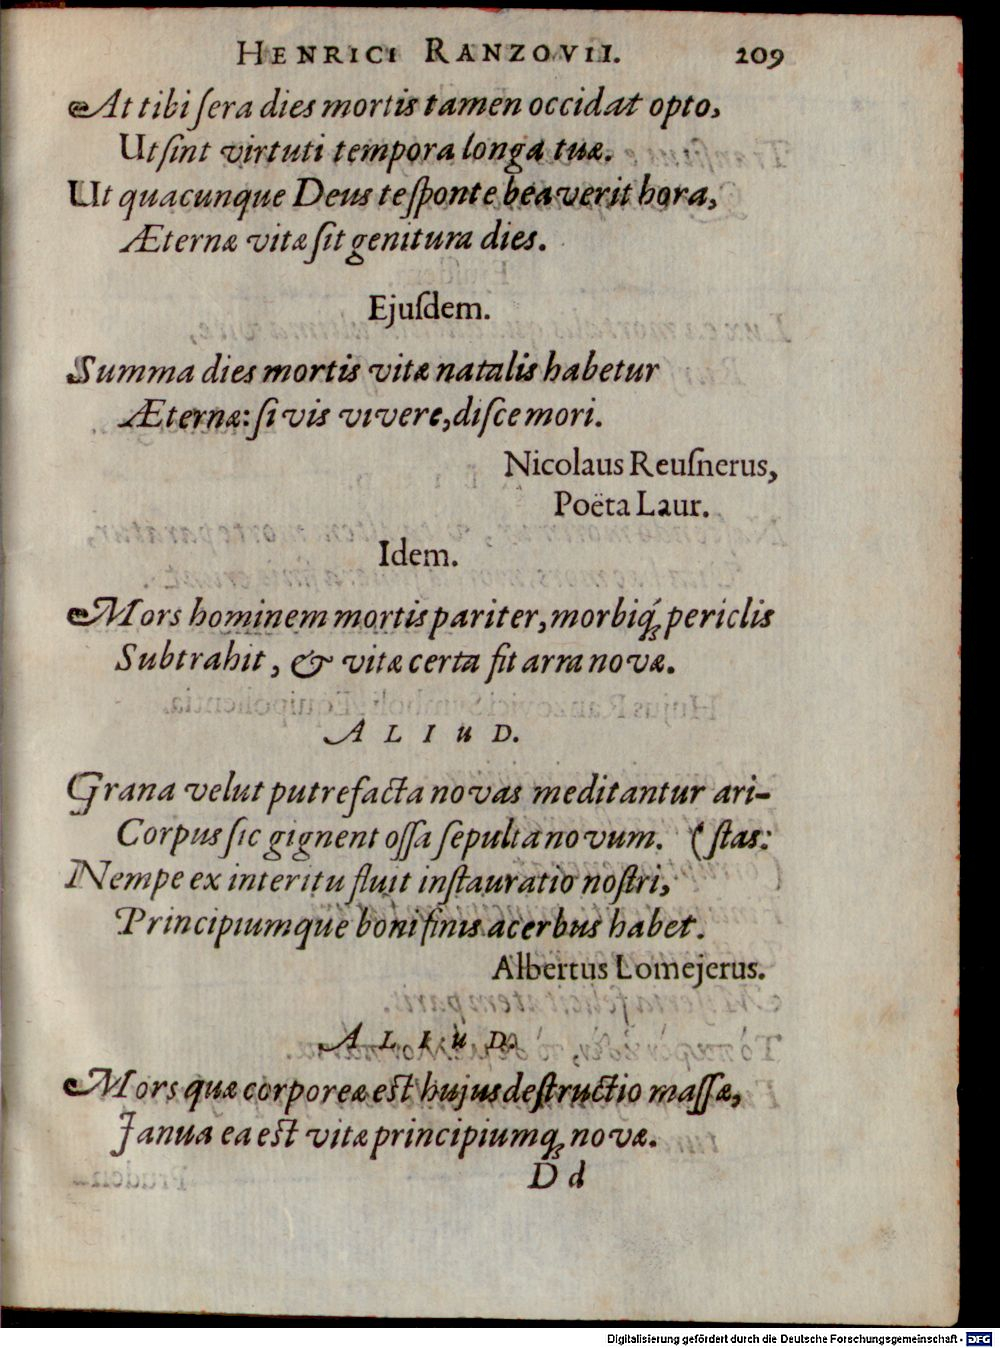 HENRICI RANZOVII. 209
At tibi ſera dies mortis tamen occidat opto,
Ut ſint virtuti tempora longa tuæ.
Ut quacunque Deus te ſponte beaverit hora,
Æternæ vitæ ſit genitura dies.
Ejuſdem.
Summa dies mortis vitæ natalis habetur
Æternæ: ſi vis vivere, diſce mori.
Nicolaus Reuſnerus,
Poëta Laur.
Idem.
Mors hominem mortis pariter, morbiq́; periclis
Subtrahit, & vitæ certa fit arra novæ.
ALIUD.
Grana velut putrefacta novas meditantur ari-
Corpus ſic gignent oſſa ſepulta novum. (ſtas:
Nempe ex interitu fluit inſtauratio noſtri,
Principiumque boni finis acerbus habet.
Albertus Lomejerus.
ALIUD.
Mors quæ corporeæ eſt hujus deſtructio maſſæ,
Janua ea eſt vitæ principiumq; novæ.
Dd
Digitalisierung gefördert durch die Deutsche Forschungsgemeinschaft - DFG